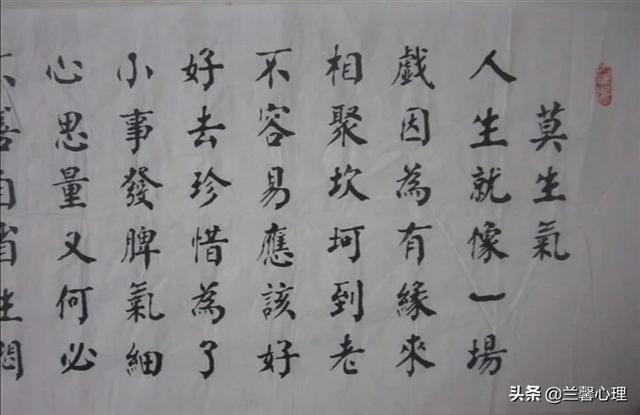 莫生氣
人生就像一場
戲因為有緣來
相聚坎坷到老
不容易應該好
好去珍惜為了
小事發脾氣細
心思量又何必
善自省生悶
头条 @兰馨心理